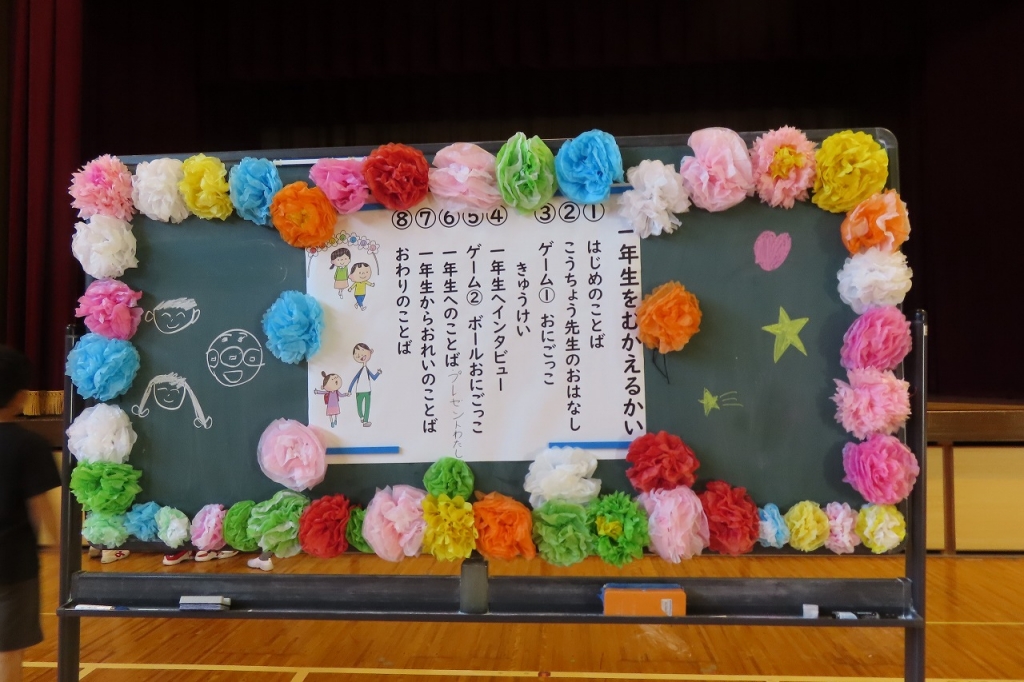 一年生をむかえるかい
①はじめのことば
②こうちょう先生のおはなし
③ゲーム① おにごっこ
きゅうけい
④一年生へインタビュー
⑤ゲーム② ボールおにごっこ
⑥一年生へのことば プレゼントわたし
⑦一年生からおれいのことば
⑧おわりのことば